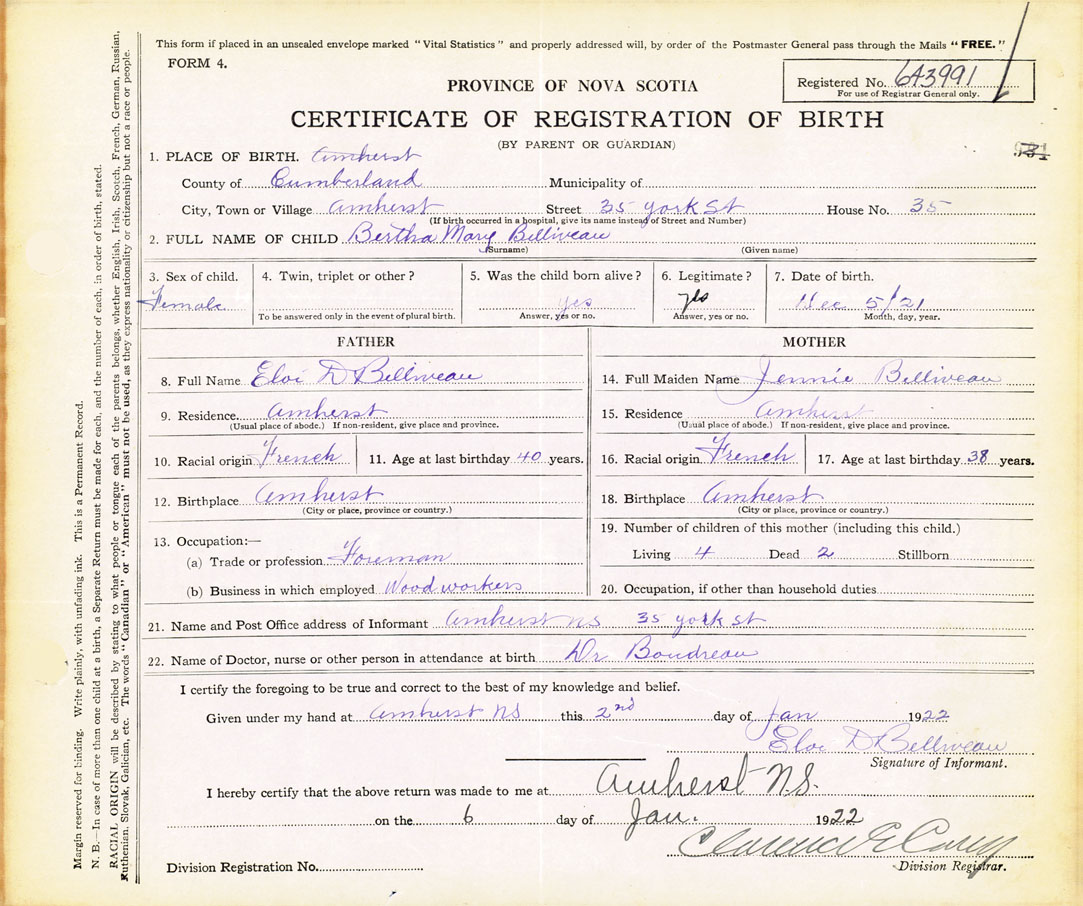 This form if placed in an unsealed envelope marked "Vital Statistics" and properly addressed will, by order of the Postmaster General pass through the Mails "FREE."
FORM 4.
Registered No. 643991
For use of Registrar General only.
PROVINCE OF NOVA SCOTIA
CERTIFICATE OF REGISTRATION OF BIRTH
(BY PARENT OR GUARDIAN)
1. PLACE OF BIRTH. Amherst
County of Cumberland Municipality of
City, Town or Village Amherst Street 35 york St House No. 35
(If birth occurred in a hospital, give its name instead of Street and Number)
2. FULL NAME OF CHILD Bertha Mary Belliveau
(Surname) (Given name)
3. Sex of child. Female
4. Twin, triplet or other?
To be answered only in the event of plural birth.
5. Was the child born alive? yes
Answer, yes or no.
6. Legitimate? yes
Answer, yes or no.
7. Date of birth. Dec 5/21
Month, day, year.
FATHER
8. Full Name Eloi D Belliveau
9. Residence. Amherst
(Usual place of abode.) If non-resident, give place and province.
10. Racial origin French 11. Age at last birthday 40 years.
12. Birthplace Amherst
(City or place, province or country.)
13. Occupation:—
(a) Trade or profession Foreman
(b) Business in which employed Wood workers
MOTHER
14. Full Maiden Name Jennie Belliveau
15. Residence Amherst
(Usual place of abode.) If non-resident, give place and province.
16. Racial origin French 17. Age at last birthday 38 years.
18. Birthplace Amherst
(City or place, province or country.)
19. Number of children of this mother (including this child.)
Living 4 Dead 2 Stillborn
20. Occupation, if other than household duties
21. Name and Post Office address of Informant Amherst NS 35 york St
22. Name of Doctor, nurse or other person in attendance at birth Dr Boudreau
I certify the foregoing to be true and correct to the best of my knowledge and belief.
Given under my hand at Amherst NS this 2nd day of Jan 1922
Eloi D Belliveau
Signature of Informant.
I hereby certify that the above return was made to me at Amherst N.S.
on the 6 day of Jan. 1922
Clarence E Carey
Division Registration No. Division Registrar.
Margin reserved for binding. Write plainly, with unfading ink. This is a Permanent Record.
N. B.—In case of more than one child at a birth, a Separate Return must be made for each, and the number of each, in order of birth, stated.
RACIAL ORIGIN will be described by stating to what people or tongue each of the parents belongs, whether English, Irish, Scotch, French, German, Russian,
Ruthenian, Slovak, Galician, etc. The words "Canadian" or "American" must not be used, as they express nationality or citizenship but not a race or people.